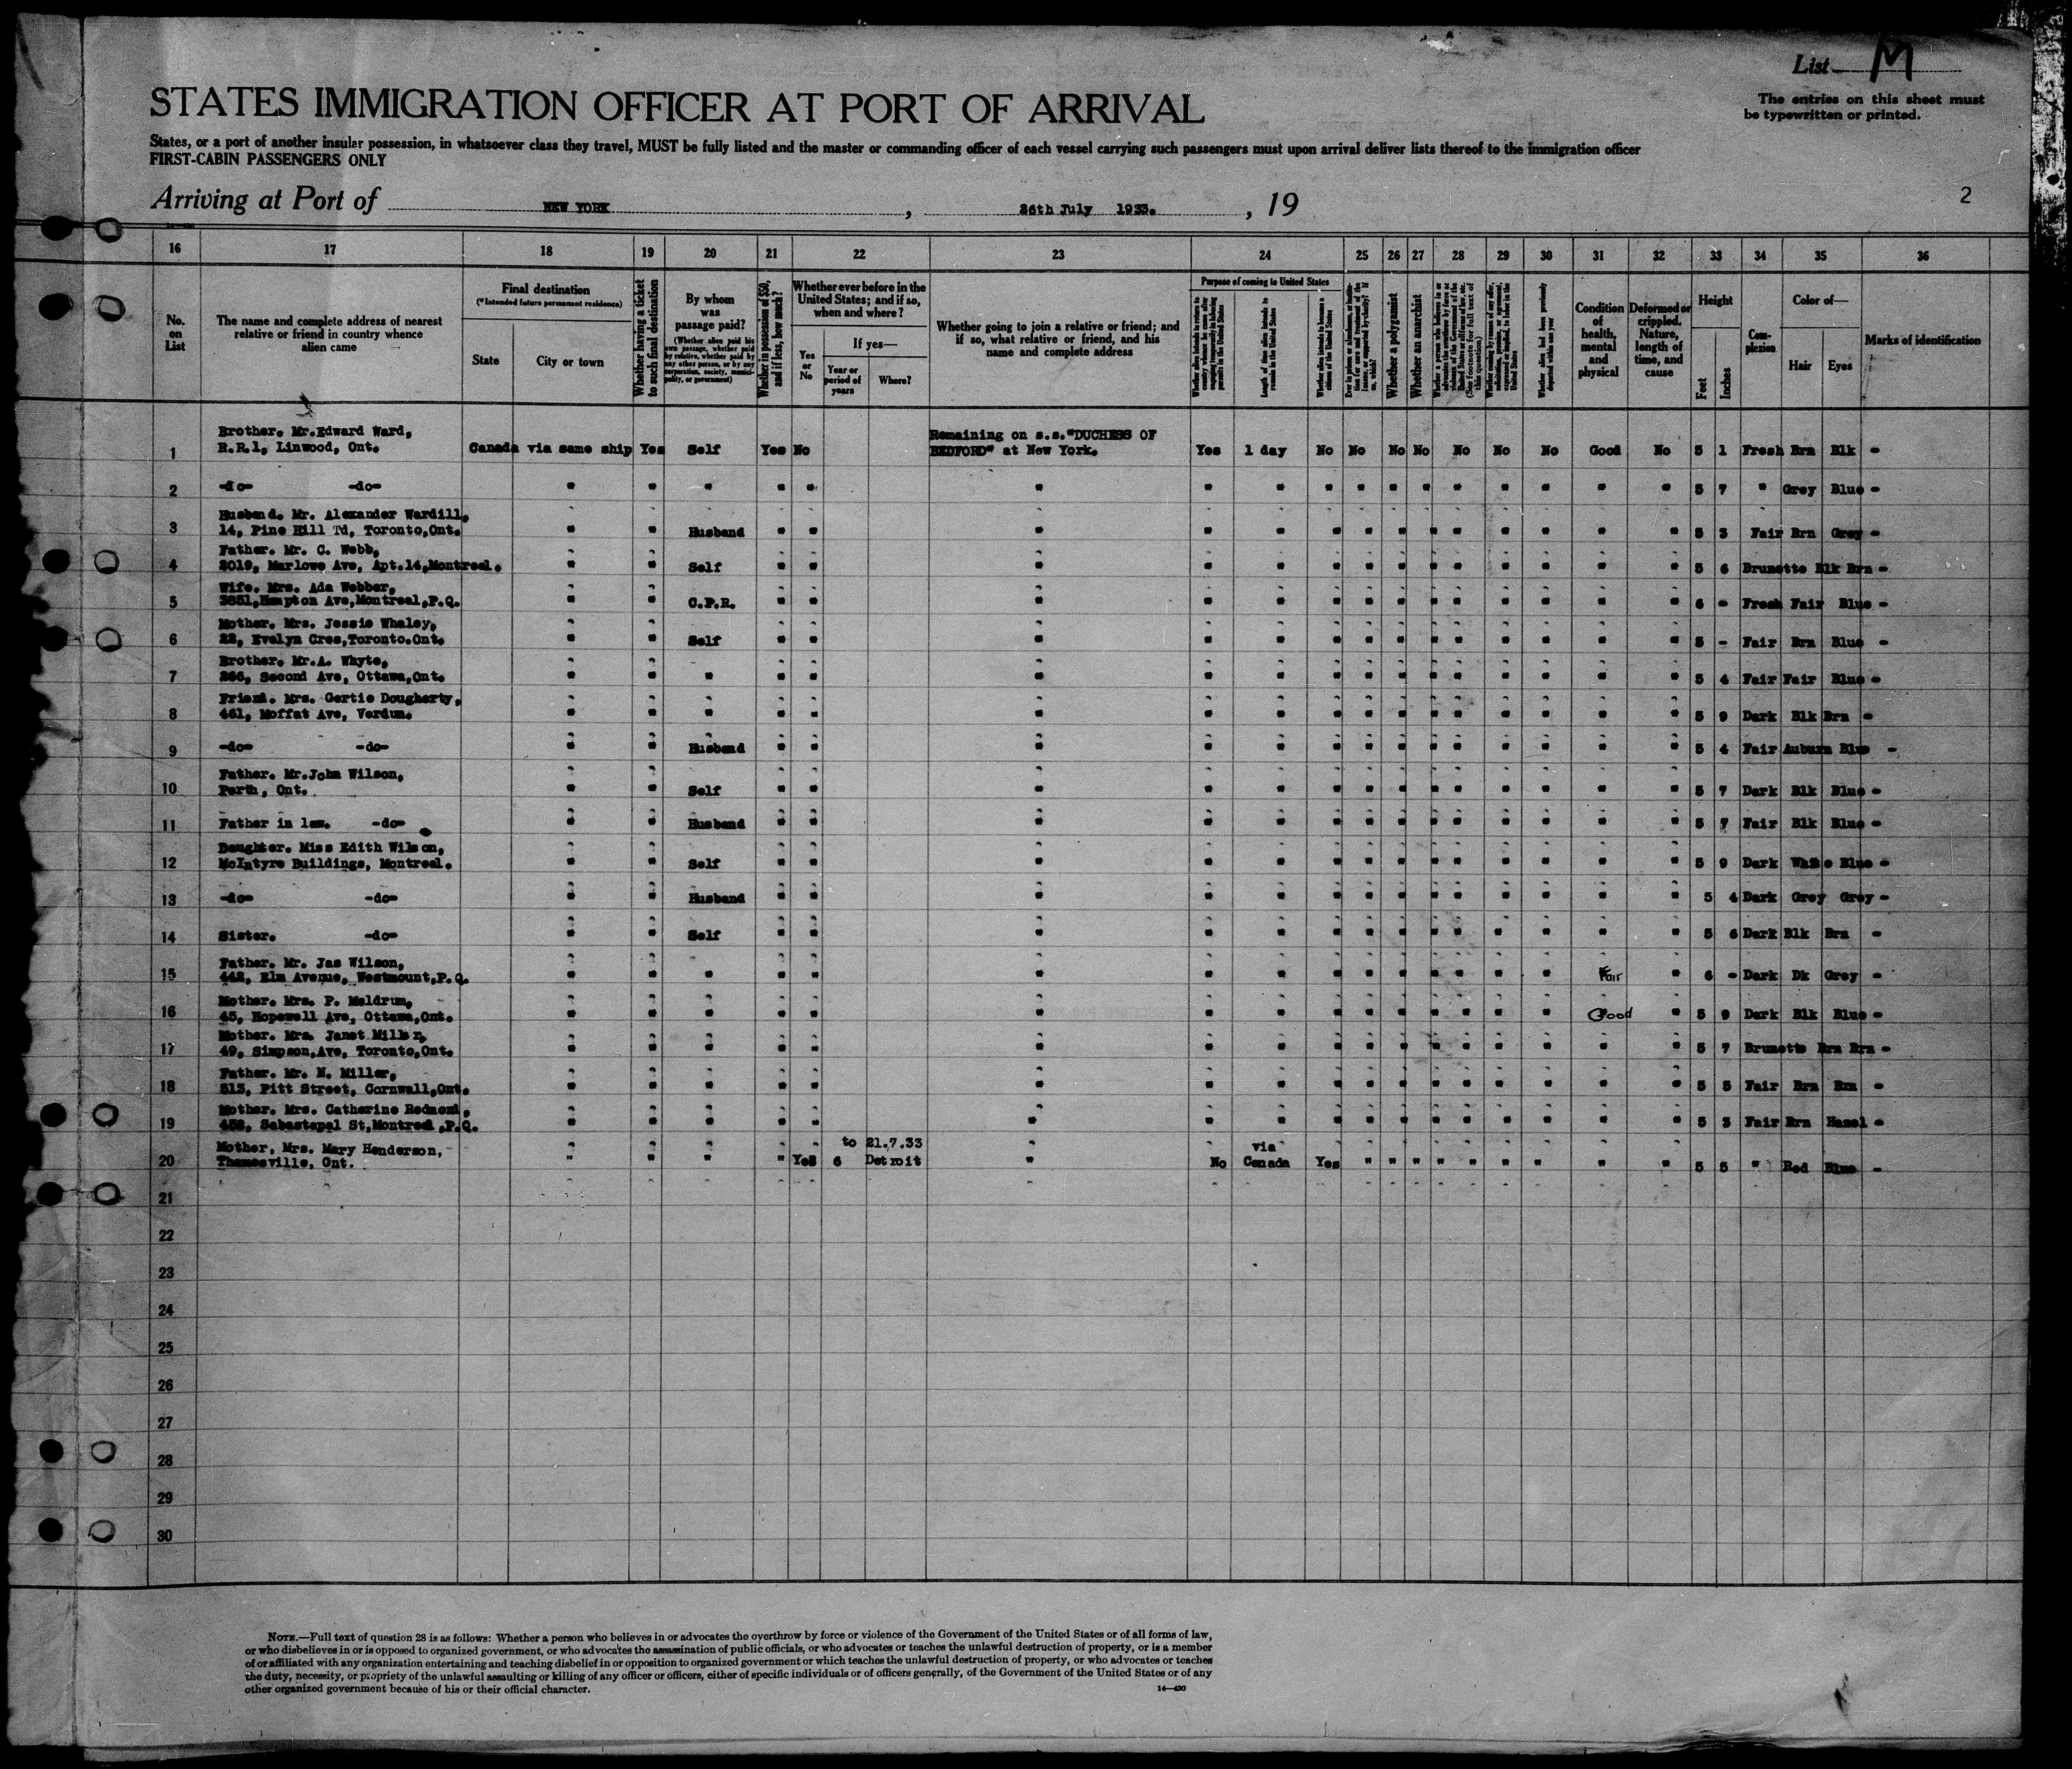 List M
The entries on this sheet must
be typewritten or printed.
STATES IMMIGRATION OFFICER AT PORT OF ARRIVAL
States, or a port of another insular possession, in whatsoever class they travel, MUST be fully listed and the master or commanding officer of each vessel carrying such passengers must upon arrival deliver lists thereof to the immigration officer
FIRST-CABIN PASSENGERS ONLY
Arriving at Port of NEW YORK, 26th July 1933. , 19
2
16 17 18 19 20 21 22 23 24 25 26 27 28 29 30 31 32 33 34 35 36
No. on List
The name and complete address of nearest relative or friend in country whence alien came
Final destination
(*Intended future permanent residence)
State
City or town
Whether having a ticket to such final destination
By whom was passage paid?
(Whether alien paid his own passage, whether paid by relative, whether paid by any other person, or by any corporation, society, municipality, or government)
Whether in possession of $50, and if less, how much?
Whether ever before in the United States; and if so, when and where?
Yes or No
If yes—
Year or period of years
Where?
Whether going to join a relative or friend; and if so, what relative or friend, and his name and complete address
Purpose of coming to United States
Length of time alien intends to remain in the United States
Whether alien intends to become a citizen of the United States
Whether a polygamist
Whether an anarchist
Whether alien had been previously deported within one year
Condition of health, mental and physical
Deformed or crippled. Nature, length of time, and cause
Height
Feet
Inches
Complexion
Color of—
Hair
Eyes
Marks of identification
1 Brother. Mr.Edward Ward, R.R.1, Linwood, Ont. Canada via same ship Yes Self Yes No Remaining on s.s."DUCHESS OF BEDFORD" at New York. Yes 1 day No No No No No No No Good No 5 1 Fresh Brn Blk -
2 -do- -do- " " " " " " " " " " " " " " " " " " 5 7 " Grey Blue -
3 Husband. Mr. Alexander Wardill, 14, Pine Hill Td, Toronto,Ont. " " Husband " " " " " " " " " " " " " " 5 3 Fair Brn Grey -
4 Father. Mr. C. Webb, 2019, Marlowe Ave, Apt.14,Montreal. " " Self " " " " " " " " " " " " " " 5 6 Brunette Blk Brn -
5 Wife. Mrs. Ada Webber, 3851,Hampton Ave,Montreal,P.Q. " " C.P.R. " " " " " " " " " " " " " " 6 - Fresh Fair Blue -
6 Mother. Mrs. Jessie Whaley, 22, Evelyn Cres,Toronto.Ont. " " Self " " " " " " " " " " " " " " 5 - Fair Brn Blue -
7 Brother. Mr.A. Whyte, 266, Second Ave, Ottawa,Ont. " " " " " " " " " " " " " " " " " 5 4 Fair Fair Blue -
8 Friend. Mrs. Gertie Dougherty, 461, Moffat Ave, Verdun. " " " " " " " " " " " " " " " " " 5 9 Dark Blk Brn -
9 -do- -do- " " Husband " " " " " " " " " " " " " " 5 4 Fair Auburn Blue -
10 Father. Mr.John Wilson, Perth, Ont. " " Self " " " " " " " " " " " " " " 5 7 Dark Blk Blue -
11 Father in law. -do- " " Husband " " " " " " " " " " " " " " 5 7 Fair Blk Blue -
12 Daughter. Miss Edith Wilson, McIntyre Buildings, Montreal. " " Self " " " " " " " " " " " " " " 5 9 Dark White Blue -
13 -do- -do- " " Husband " " " " " " " " " " " " " " 5 4 Dark Grey Grey -
14 Sister. -do- " " Self " " " " " " " " " " " " " " 5 6 Dark Blk Brn -
15 Father. Mr. Jas Wilson, 442, Elm Avenue, Westmount,P.Q. " " " " " " " " " " " " " " " Fair " 6 - Dark Dk Grey -
16 Mother. Mrs. P. Meldrum, 45, Hopewell Ave, Ottawa,Ont. " " " " " " " " " " " " " " " Good " 5 9 Dark Blk Blue -
17 Mother. Mrs. Janet Miller, 49, Simpson,Ave, Toronto,Ont. " " " " " " " " " " " " " " " " " 5 7 Brunette Brn Brn -
18 Father. Mr. N. Miller, 513, Pitt Street, Cornwall,Ont. " " " " " " " " " " " " " " " " " 5 5 Fair Brn Brn -
19 Mother. Mrs. Catherine Redmond, 458, Sabastapal St,Montreal,P.Q. " " " " " " " " " " " " " " " " " 5 3 Fair Brn Hazel -
20 Mother, Mrs. Mary Henderson, Thamesville, Ont. " " " " Yes 6 to 21.7.33 Detroit " No via Canada Yes " " " " " " " " 5 5 " Red Blue -
21
22
23
24
25
26
27
28
29
30
NOTE.—Full text of question 28 is as follows: Whether a person who believes in or advocates the overthrow by force or violence of the Government of the United States or of all forms of law,
or who disbelieves in or is opposed to organized government, or who advocates the assassination of public officials, or who advocates or teaches the unlawful destruction of property, or is a member
of or affiliated with any organization entertaining and teaching disbelief in or opposition to organized government or which teaches the unlawful destruction of property, or who advocates or teaches
the duty, necessity, or propriety of the unlawful assaulting or killing of any officer or officers, either of specific individuals or of officers generally, of the Government of the United States or of any
other organized government because of his or their official character.
14—430